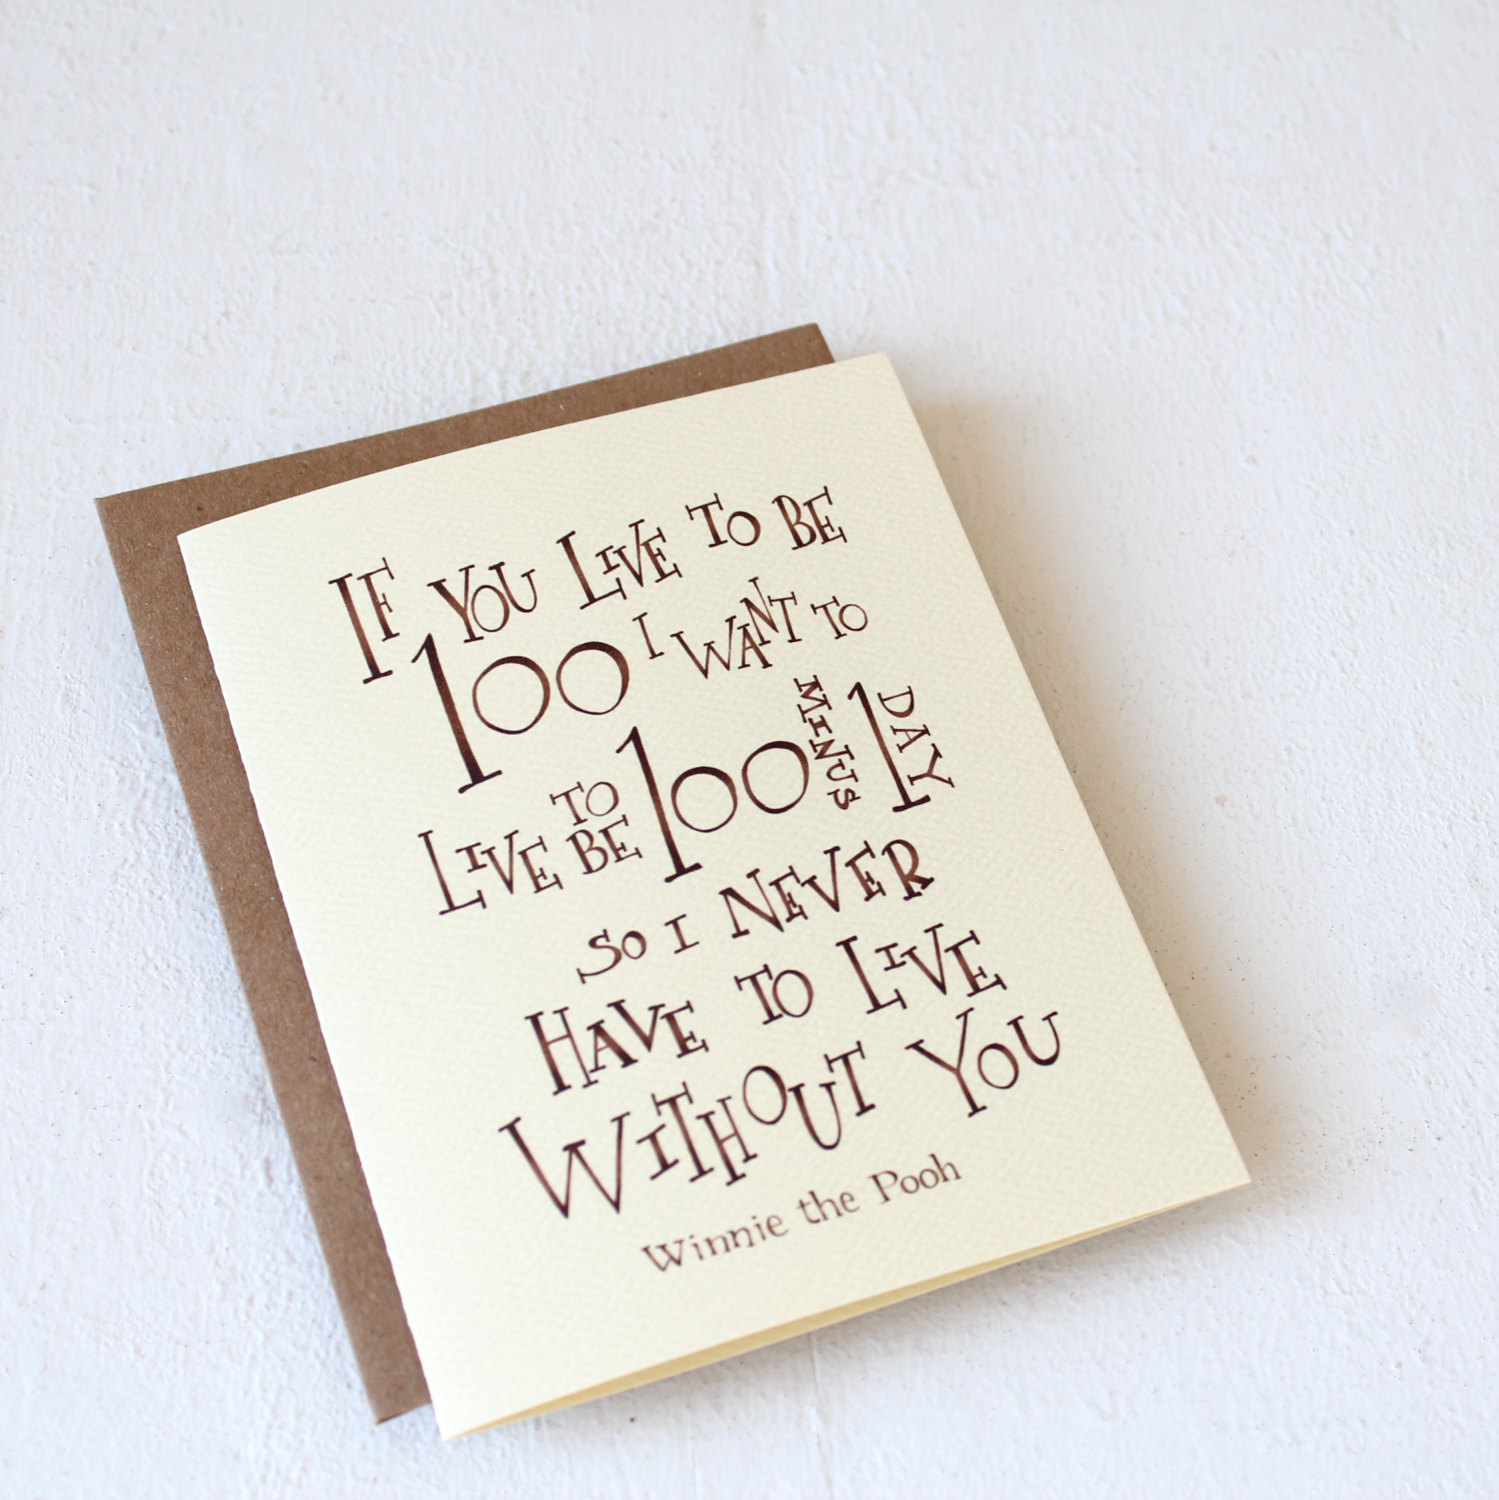 IF YOU LIVE TO BE
100 I WANT TO
LIVE TO BE 100 MINUS 1 DAY
SO I NEVER
HAVE TO LIVE
WITHOUT YOU
Winnie the Pooh